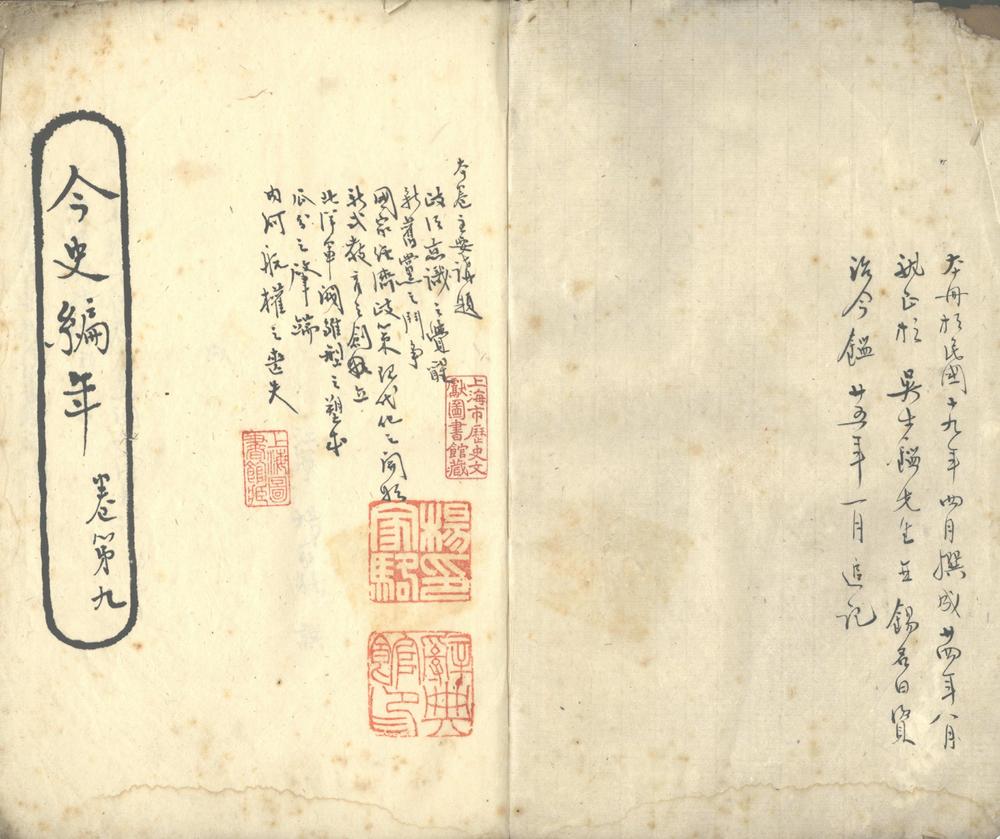 本冊於民國十九年四月撰成廿四年八月
就正於 吳士鑑先生並錫名曰資
治今鑑廿五年一月追記
本卷主要議題
政治意識之覺醒
新舊黨之鬥爭
國家經濟政策現代化之開始
新式教育之創立
北洋軍閥雛型之塑成
瓜分之肇端
內河航權之喪失
上海市歷史文
獻圖書館藏
上海圖
書館藏
楊印
家駱
辭典
館印
今史編年
卷第九